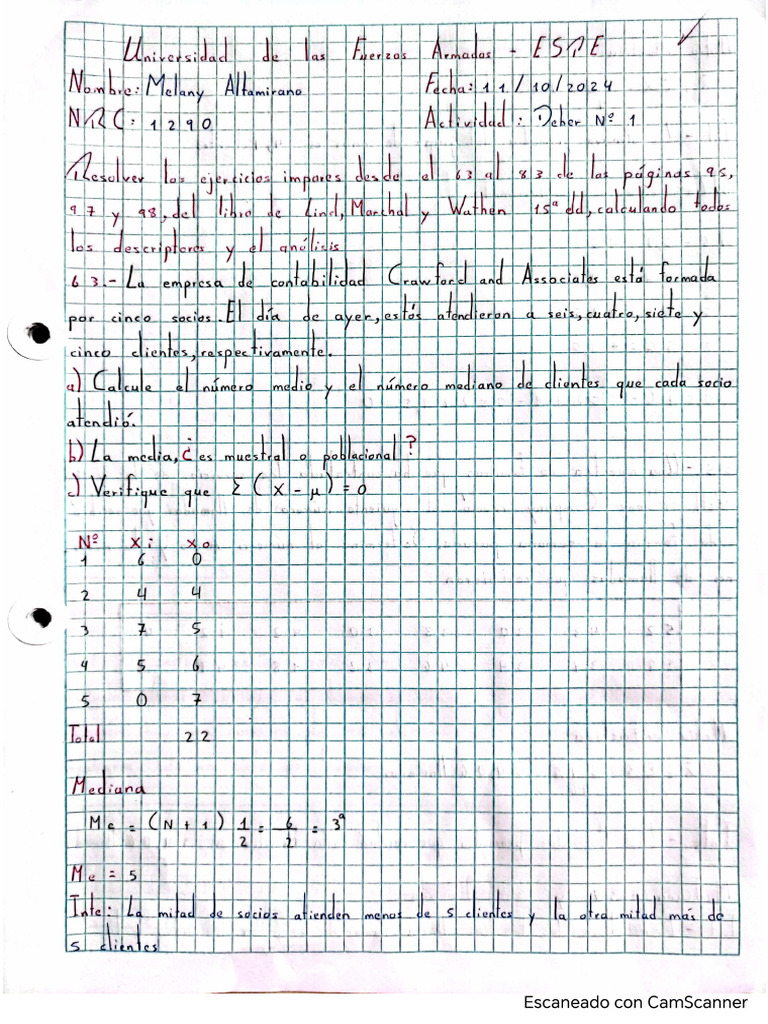 Universidad de las Fuerzas Armadas - ESPE
Nombre: Melany Altamirano Fecha: 11/10/2024
NRC: 1290 Actividad: Deber Nº 1
Resolver los ejercicios impares desde el 63 al 83 de las páginas 95,
97 y 98, del libro de Lind, Marchal y Wathen 15ª dd, calculando todos
los descriptores y el análisis
63.- La empresa de contabilidad Crawford and Associates está formada
por cinco socios. El día de ayer, estós atendieron a seis, cuatro, siete y
cinco clientes, respectivamente.
a) Calcule el número medio y el número mediano de clientes que cada socio
atendió.
b) La media, ¿es muestral o poblacional?
c) Verifique que Σ(x - μ) = 0
Nº xi xo
1 6 0
2 4 4
3 7 5
4 5 6
5 0 7
Total 22
Mediana
Me = (N + 1) 1/2 = 6/2 = 3ª
Me = 5
Inte: La mitad de socios atienden menos de 5 clientes y la otra mitad más de
5 clientes
Escaneado con CamScanner